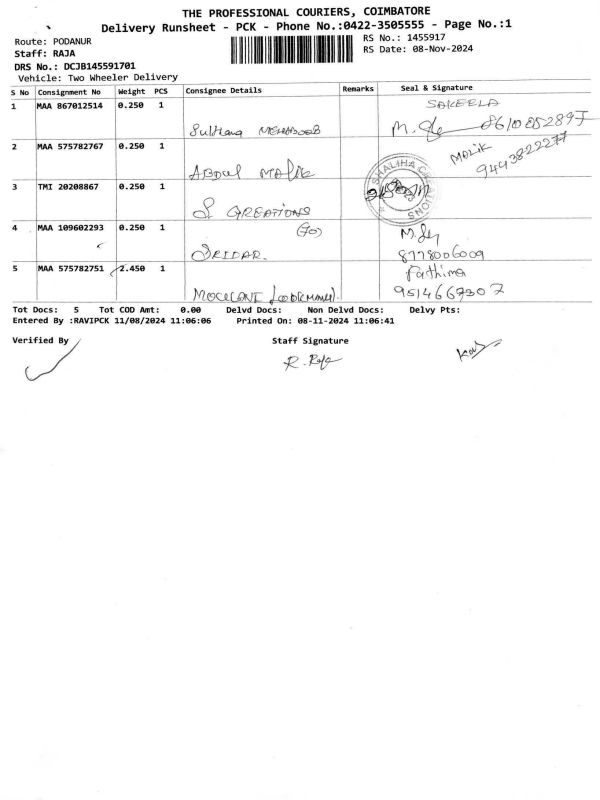 THE PROFESSIONAL COURIERS, COIMBATORE
Delivery Runsheet - PCK - Phone No.:0422-3505555 - Page No.:1
Route: PODANUR
RS No.: 1455917
Staff: RAJA
RS Date: 08-Nov-2024
DRS No.: DCJB145591701
Vehicle: Two Wheeler Delivery
S No Consignment No Weight PCS Consignee Details Remarks Seal & Signature
SAKEELA
1 MAA 867012514 0.250 1
Sulthana MEHABOOB
2 MAA 575782767 0.250 1
MALIK
9443822277
ABDUL MALIK
SHALIHA
3 TMI 20208867 0.250 1
S CREATIONS
4 MAA 109602293 0.250 1
(70)
SRIDAR.
8778006009
5 MAA 575782751 2.450 1
Fathima
9514667307
Tot Docs: 5 Tot COD Amt: 0.00 Delvd Docs: Non Delvd Docs: Delvy Pts:
Entered By :RAVIPCK 11/08/2024 11:06:06 Printed On: 08-11-2024 11:06:41
Verified By
Staff Signature
R. Raja